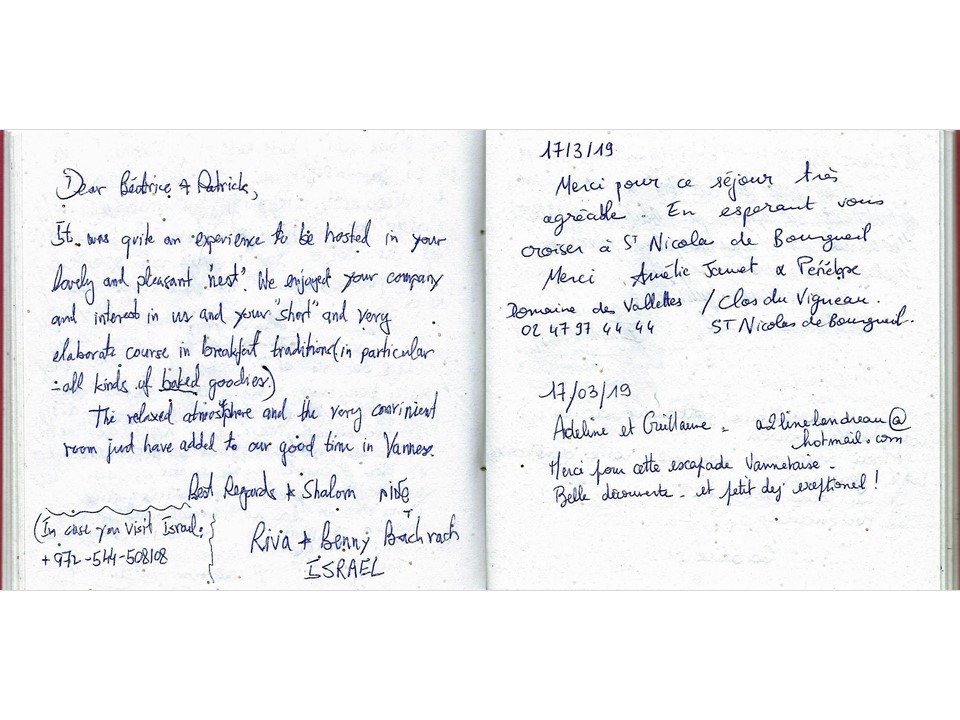 Dear Béatrice & Patrick,
It was quite an experience to be hosted in your
lovely and pleasant "nest". We enjoyed your company
and interest in us and your "short" and very
elaborate course in breakfast traditions (in particular
- all kinds of baked goodies.)
The relaxed atmosphere and the very convinient
room just have added to our good time in Vannes.
Best Regards & Shalom
Riva & Benny Bachrach
ISRAEL
(In case you visit Israel:
+972-544-508108
17/3/19
Merci pour ce séjour très
agréable. En esperant vous
croiser à St Nicolas de Bourgueil
Merci Amélie Jamet & Pénélope
Domaine des Vallettes / Clos du Vigneau.
02 47 97 44 44 ST Nicolas de Bourgueil.
17/03/19
Adeline et Guillaume - a2linelandreau@
hotmail.com
Merci pour cette escapade Vannetaise -
Belle découverte - et petit dej exceptionel !